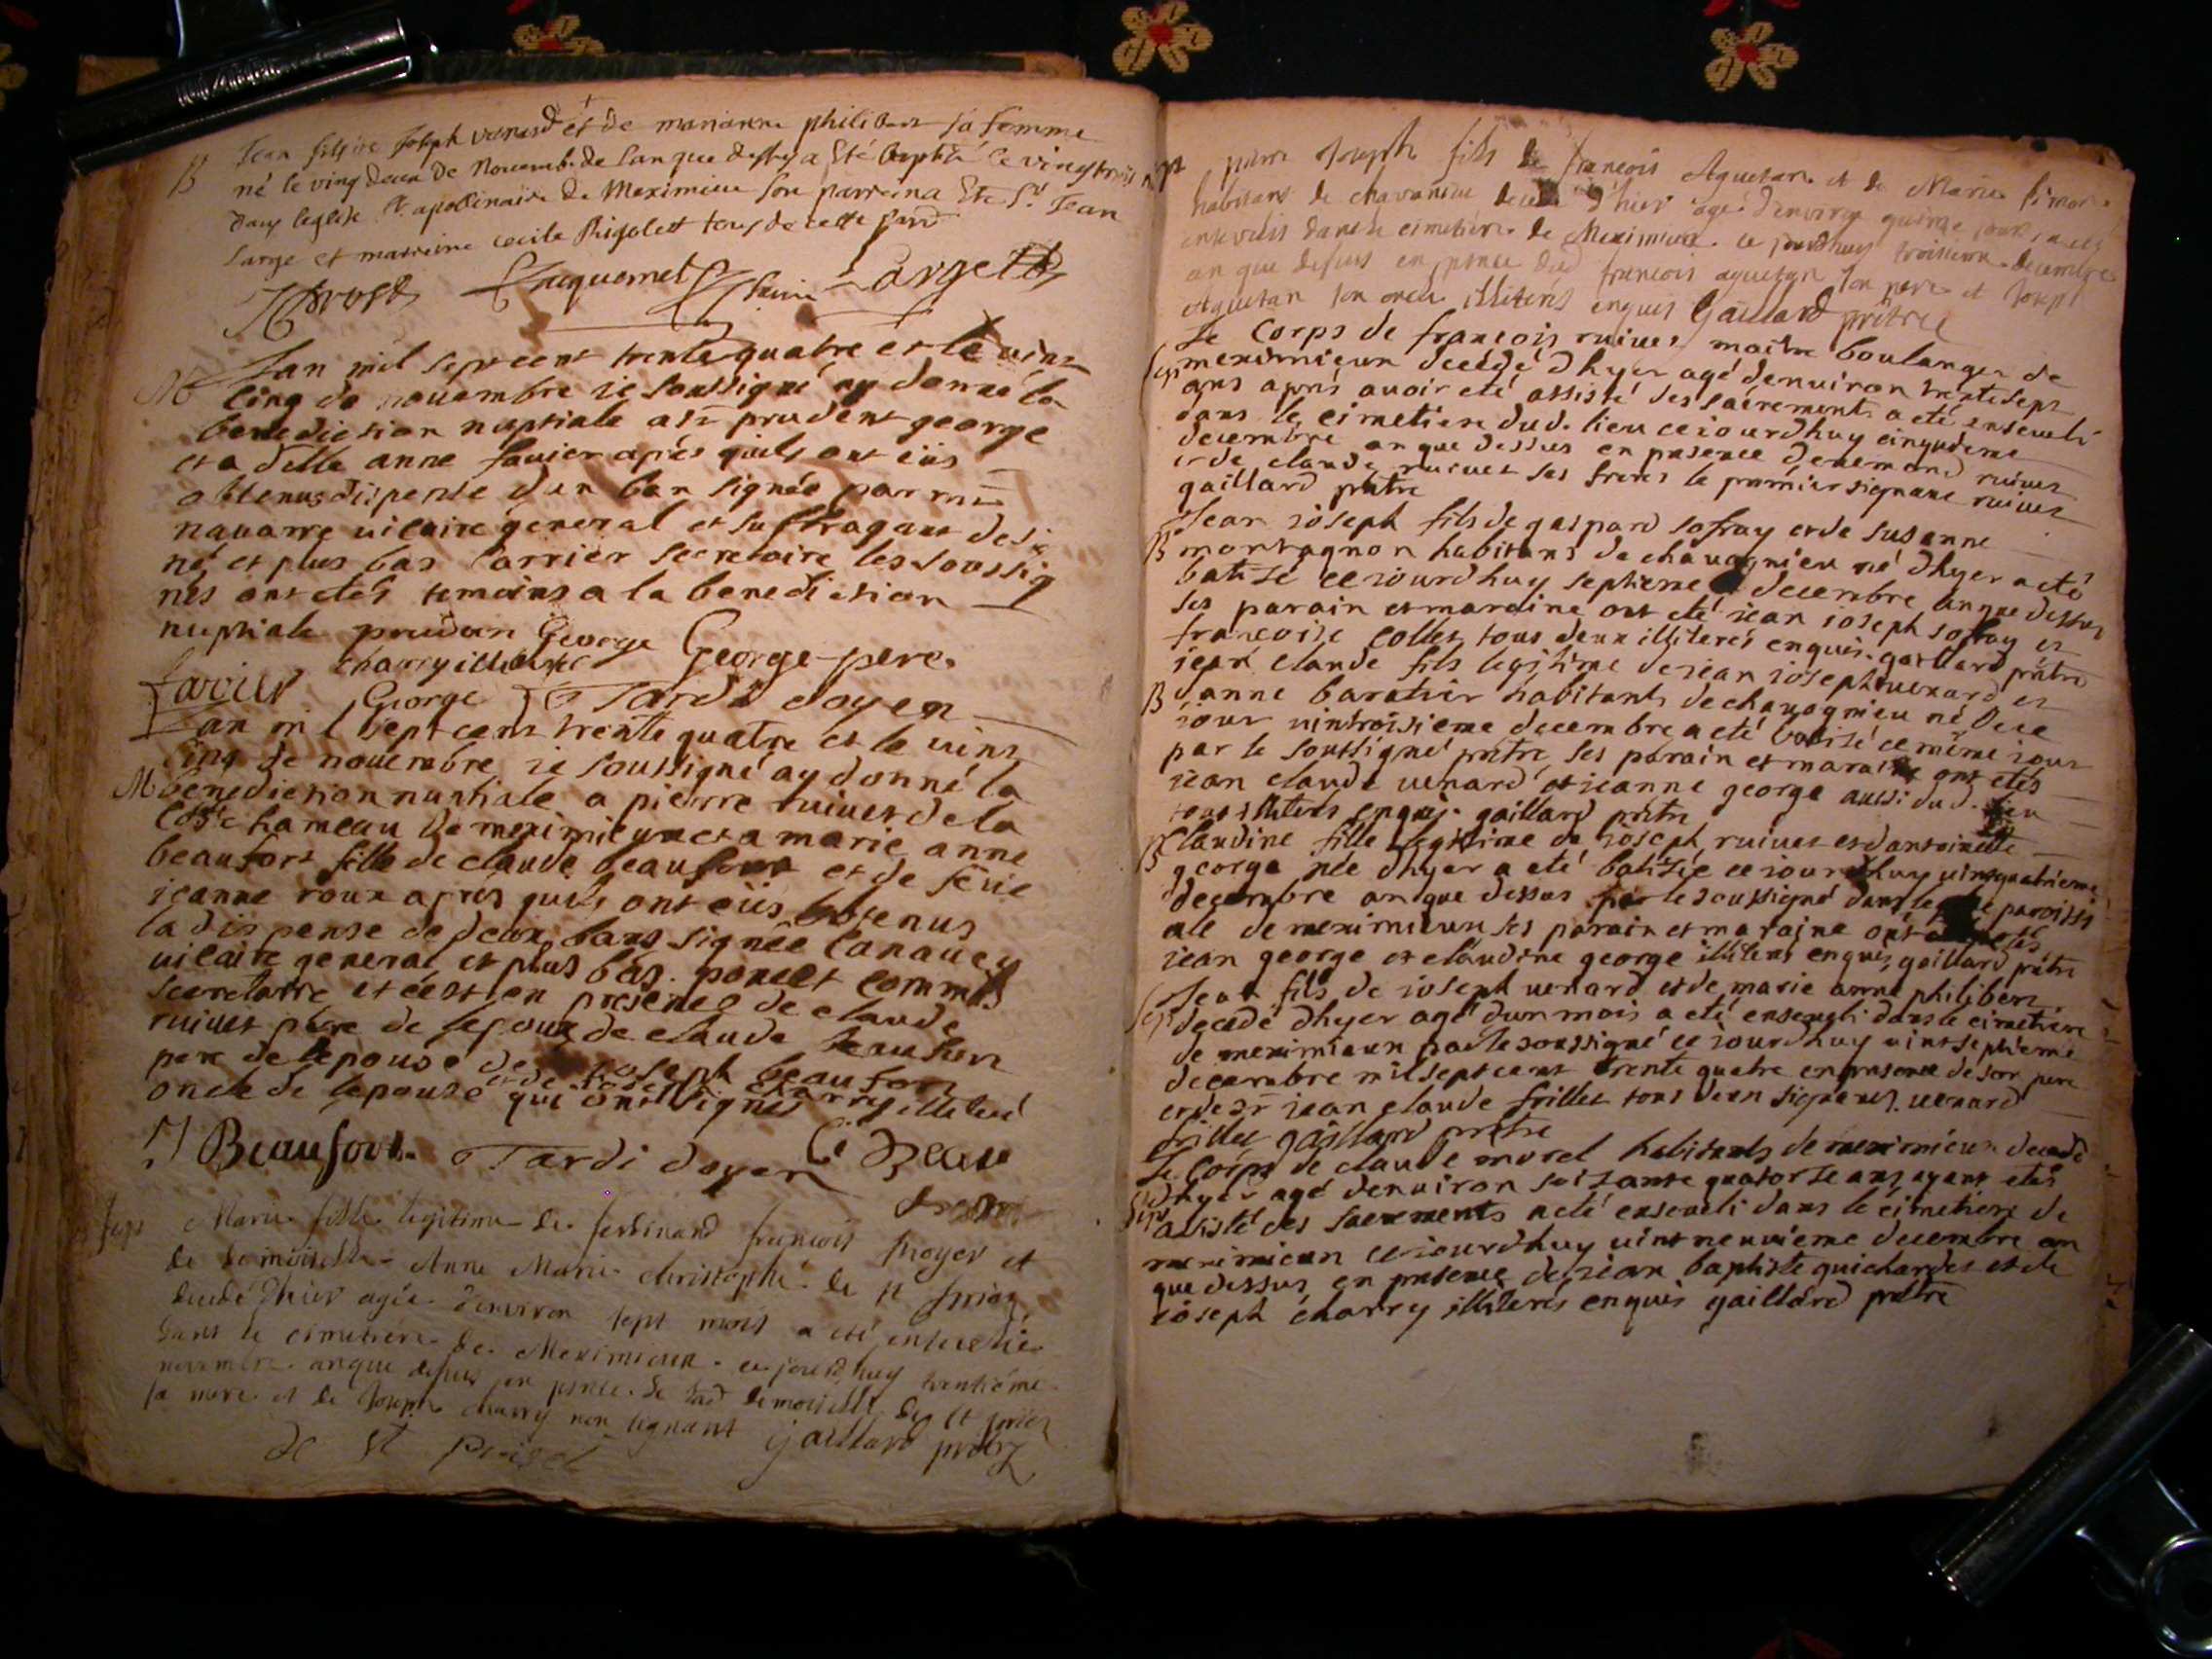 B Jean fils de Joseph venard et de marianne philibert sa femme
né le ving deux de Novemb. de l'an que dessus a Eté baptisé ce vingt trois
dans leglise St. apolinaire de Meximieu son parrein a Ete Sr. Jean
Large et marreine cecile Rigolet tous de cette parr
Jaquemet Large
M Lan mil sept cent trente quatre et le vint
cinq de nouembre ie soussigné ay donné la
benediction nuptiale a sr prudent george
et a delle anne fauier aprés quils ont eüs
obtenus dispense d'un ban signée par mr
nauarre uicaire general et suffragant de si
né et plus bas Carrier secretaire les soussig
nés ont etés temoins a la benediction
nuptiale prudan George George pere
charry illiteré
favier George Tardi doyen
Lan mil sept cent trente quatre et le uint
cinq de nouembre ie soussigné ay donné la
M benediction nuptiale a pierre ruiuet de la
Coste hameau de meximieux et a marie anne
beaufort fille de claude beaufort et de feüe
jeanne roux apres quils ont eüs obtenus
la dispense de deux bans signée
uicaire general et plus bas. poncet commis
secretaire et ce en presence de claude
ruiuet pere de lepoux de claude beaufort
pere de lepouse de joseph beaufort
oncle de lepouse qui ont signés et de joseph charry illiteré
J Beaufort. Tardi doyen C Beau
fort
Sep Marie fille legitime de ferdinand francois Proyer et
de demoiselle Anne Marie christophe de st
decedé d'hier agée d'environ sept mois a eté ensevelie
dans le cimetiere de Meximieux ce jourdhuy trentiéme
novembre an que dessus en pnce de lad demoiselle de st
sa mere et de Joseph charry non signant Gaillard prêtre
De st
Sep pierre Joseph fils de francois Aguetan et de Marie simon
habitans de chavanieu decedé d'hier agé d'environ quinze jours a eté
enseveli dans le cimetiere de Meximieux ce jourdhuy troisieme decembre
an que dessus en pnce dud francois aguetan son pere et Joseph
Aguetan son oncle illiterés enquis Gaillard prêtre
Le Corps de francois ruiuet maitre boulanger de
Sep meximieux decédé dhyer agé denuiron trente sept
ans aprés auoir eté assisté des sacrements a eté enseueli
dans le cimetiere dud. lieu ce iourdhuy cinquieme
decembre an que dessus en presence denemond ruiuet
et de claude ruiuet ses freres le premier signant ruiuet
gaillard prêtre
Jean ioseph fils de gaspard sofray et de susanne
B montagnon habitans de chauagnieu né dhyer a eté
batisé ce iourdhuy septieme decembre an que dessus
ses parain et maraine ont eté iean ioseph sofray et
francoise collet tous deux illiterés enquis. gaillard prêtre
iean claude fils legitime de iean ioseph uenard et
B danne baratier habitants de chauagnieu né de ce
iour uintroisieme decembre a eté batisé ce même iour
par le soussigné prêtre, ses parain et maraine ont etés
iean claude uenard et ieanne george aussi dud. lieu
tous illiterés enquis. gaillard prêtre
B Claudine fille legitime de joseph ruiuet et dantoinette
george née dhyer a eté batisée ce iourdhuy uintquatrieme
decembre an que dessus par le soussigné dans leglise paroissi
ale de meximieux ses parain et maraine ont etés
iean george et claudine george illiterés enquis gaillard prêtre
Jean fils de ioseph uenard et de marie anne philibert
Sep decedé dhyer agé dun mois a eté enseueli dans le cimetiere
de meximieux par le soussigné ce iourdhuy uintseptieme
decembre mil sept cent trente quatre en presence de son pere
et de sr iean claude frillet tous deux signants. uenard
frillet gaillard prêtre
Le Corps de claude morel habitants de meximieux decedé
Sep dhyer agé denuiron soisante quatorse ans ayant etés
assisté des sacrements a eté enseueli dans le cimetiere de
meximieux ce iourdhuy uint neuuieme decembre an
que dessus en presence de iean baptiste guichardet et de
ioseph charry illiterés enquis gaillard prêtre